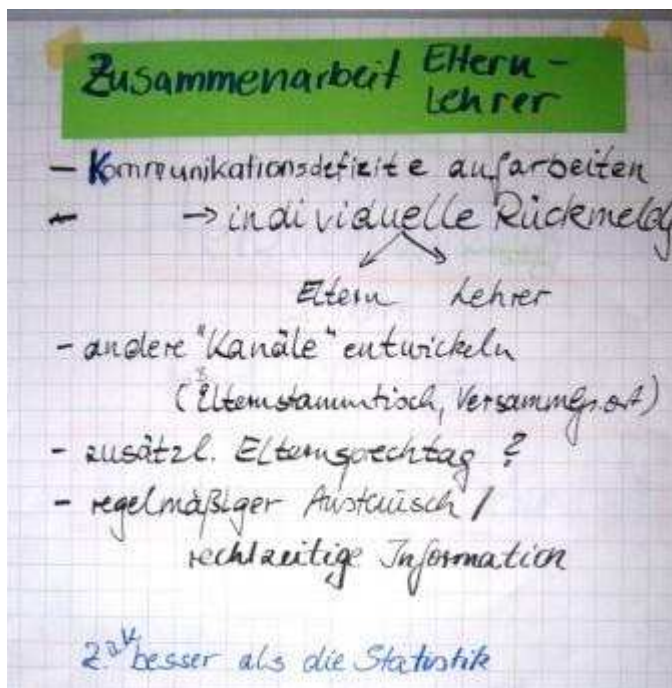 Zusammenarbeit Eltern-
Lehrer
- Kommunikationsdefizite aufarbeiten
- → individuelle Rückmeldg
Eltern Lehrer
- andere "Kanäle" entwickeln
(Elternstammtisch, Versammlgs.ort)
- zusätzl. Elternsprechtag ?
- regelmäßiger Austausch /
rechtzeitige Information
besser als die Statistik